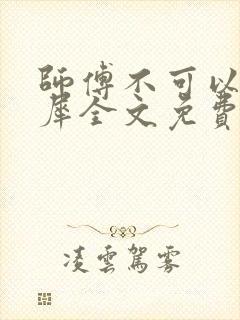 師傅不可以
犀全文免費
凌雲駕雾